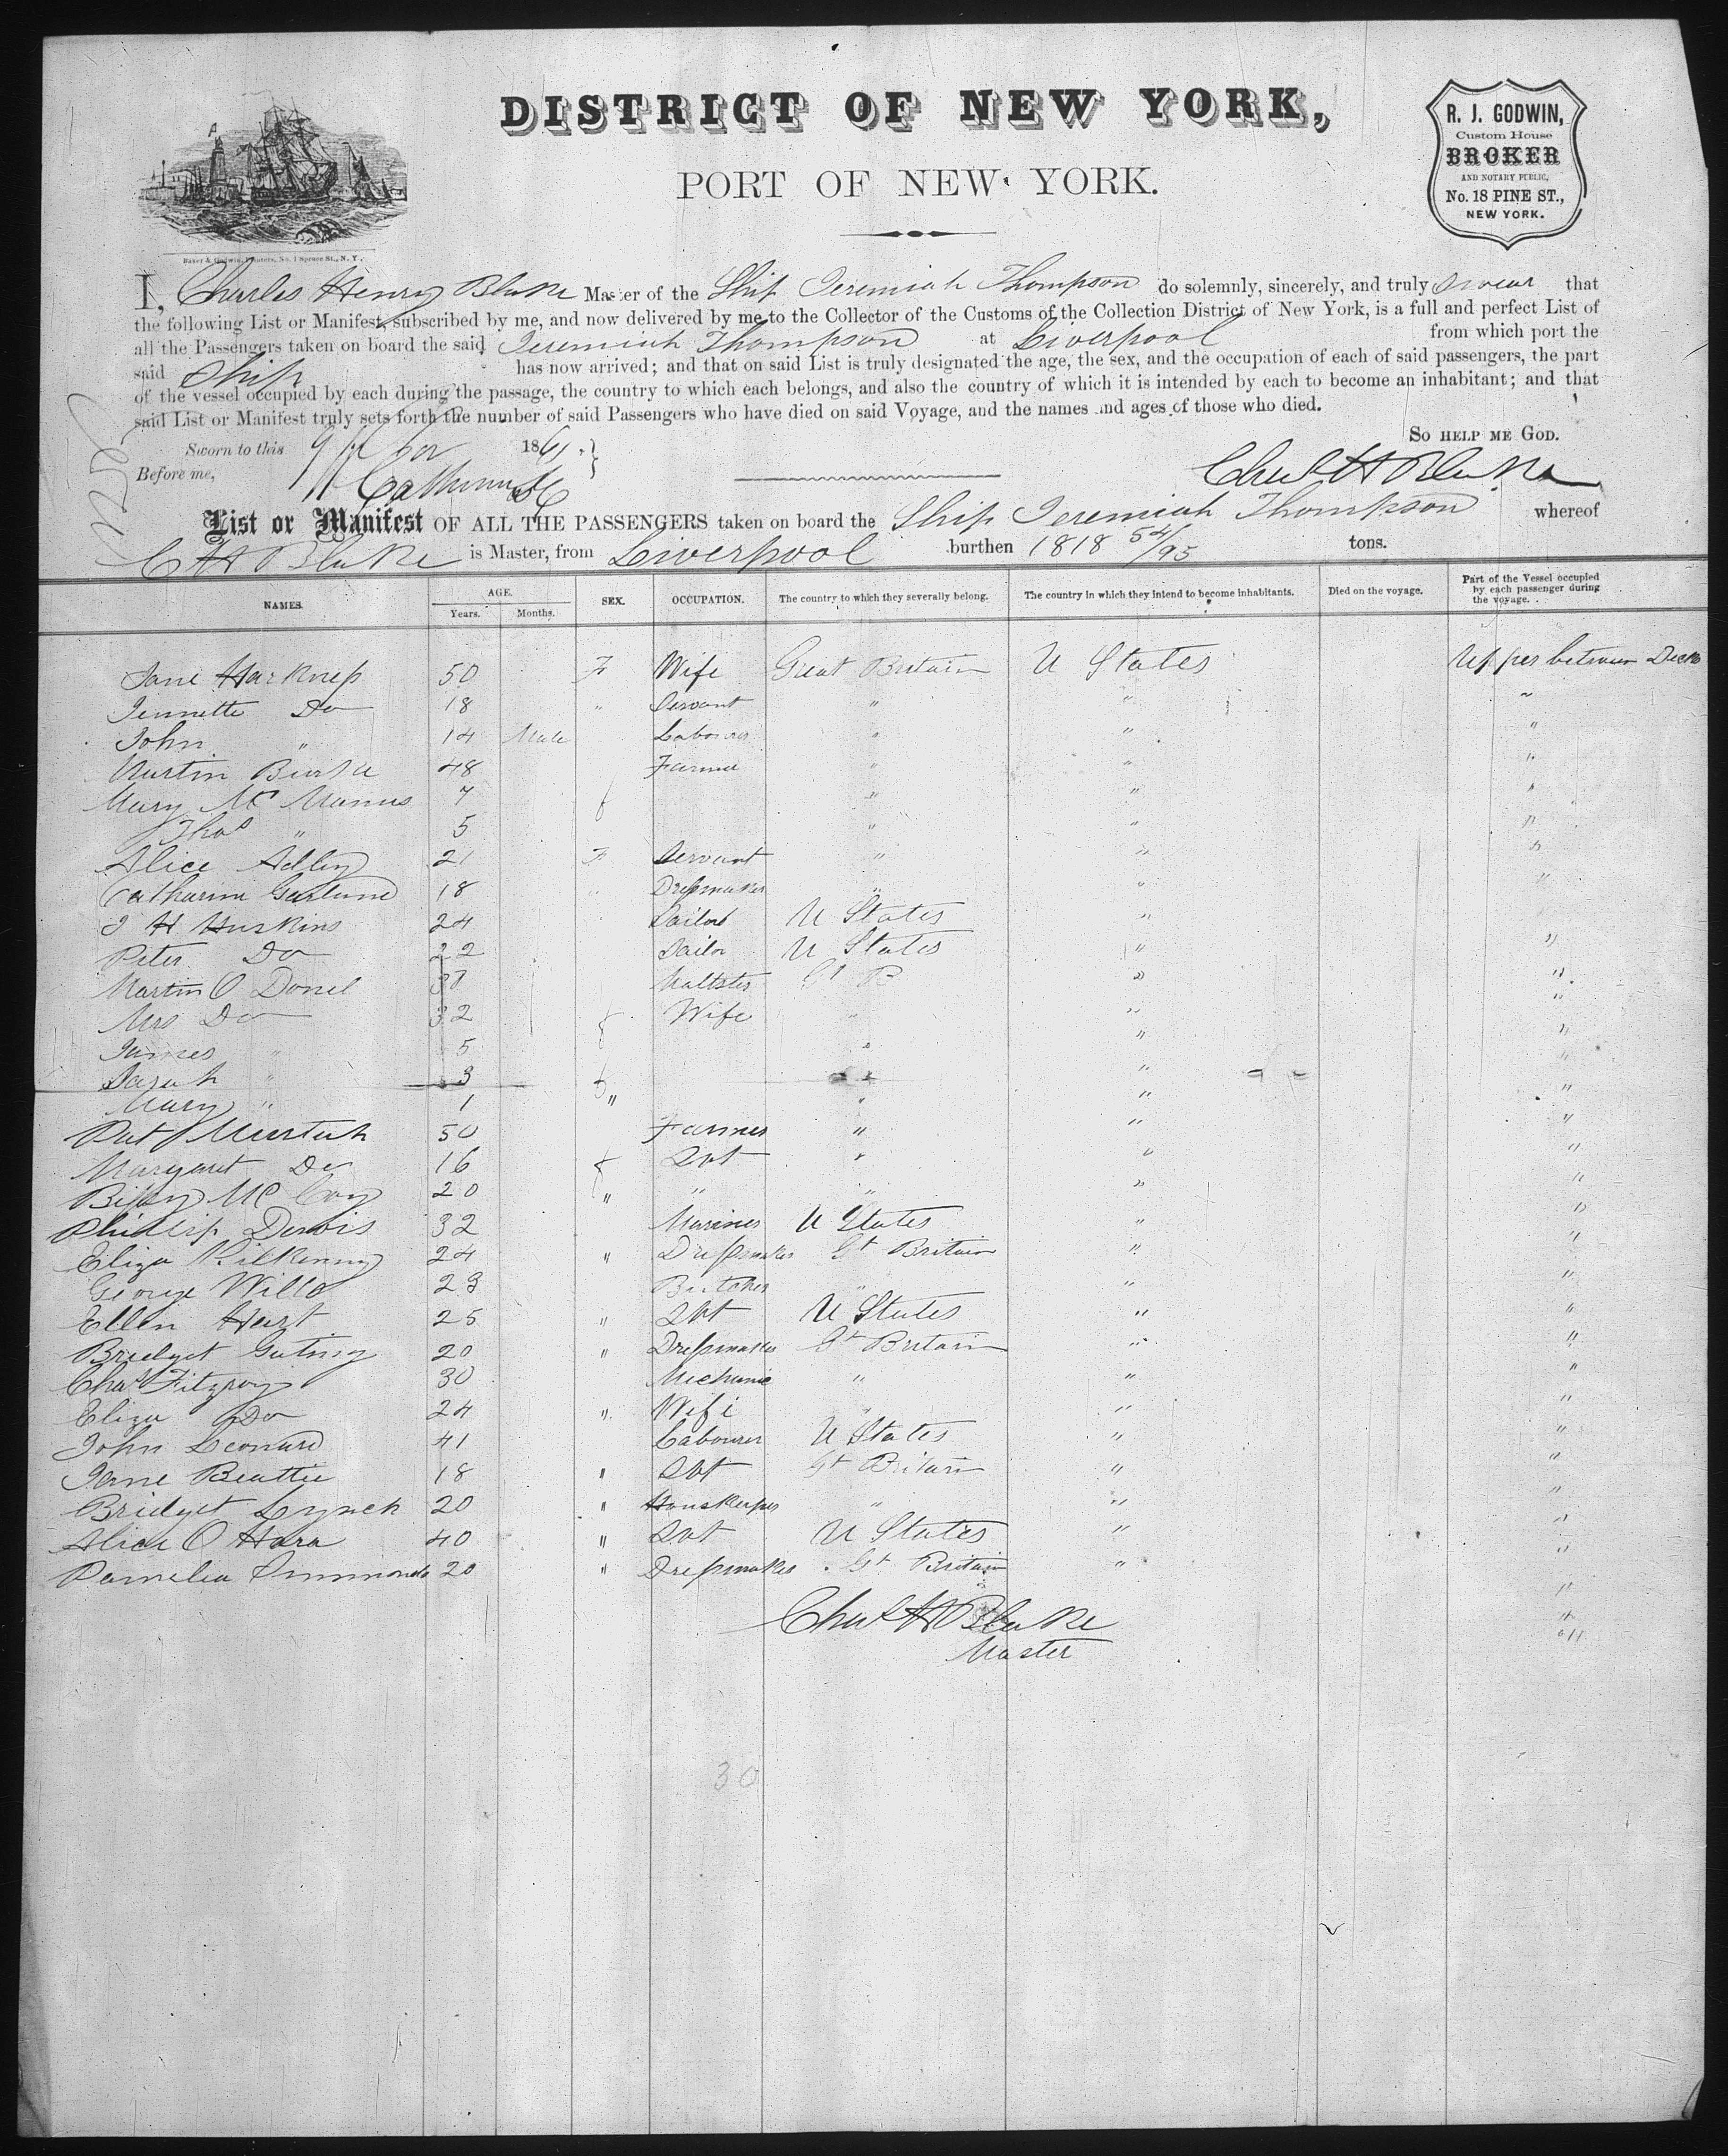 DISTRICT OF NEW YORK,
PORT OF NEW YORK.
R. J. GODWIN,
Custom House
BROKER
AND NOTARY PUBLIC,
No. 18 PINE ST.,
NEW YORK.
Baker & Godwin, Printers, No. 1 Spruce St., N. Y.
I, Charles Henry Blake Master of the Ship Jeremiah Thompson do solemnly, sincerely, and truly swear that
the following List or Manifest, subscribed by me, and now delivered by me to the Collector of the Customs of the Collection District of New York, is a full and perfect List of
all the Passengers taken on board the said Jeremiah Thompson at Liverpool from which port the
said Ship has now arrived; and that on said List is truly designated the age, the sex, and the occupation of each of said passengers, the part
of the vessel occupied by each during the passage, the country to which each belongs, and also the country of which it is intended by each to become an inhabitant; and that
said List or Manifest truly sets forth the number of said Passengers who have died on said Voyage, and the names and ages of those who died.
Sworn to this 9 186
So HELP ME GOD.
Before me,
Chas H Blake
List or Manifest OF ALL THE PASSENGERS taken on board the Ship Jeremiah Thompson whereof
C H Blake is Master, from Liverpool burthen 1818 54/95 tons.
NAMES. AGE. Years. Months. SEX. OCCUPATION. The country to which they severally belong. The country in which they intend to become inhabitants. Died on the voyage. Part of the Vessel occupied by each passenger during the voyage.
Jane Harkness 50 F Wife Great Britain U States Upper between Decks
Jennette Do 18 " Servant " " "
John " 14 Male Labourer " " "
Martin Burke 48 Farmer " " "
Mary Mc Manus 7 f " " "
Thos " 5 " " "
Alice Adley 21 F Servant " " "
Catharine Garland 18 " Dressmaker " " "
J H Huskins 24 Sailor U States "
Peter Do 22 Sailor U States " "
Martin O Donel 37 Maltster Gt B " "
Mrs Do 32 f Wife " " "
James " 5 " " "
Sarah " 3 f " " "
Mary " 1 " " " "
Pat Murtah 50 Farmer " " "
Margaret Do 16 f Svt " " "
Bissy Mc Coy 20 " " " " "
Phillip Dennis 32 Mariner U States " "
Eliza Kilkenny 24 " Dressmaker Gt Britain " "
George Wills 23 Butcher " " "
Ellen Hart 25 " Svt U States " "
Bridget Gatiny 20 " Dressmaker Gt Britain " "
Chas Fitzroy 30 Mechanic " " "
Eliza Do 24 " Wife " " "
John Leonard 41 Labourer U States " "
Jane Beattie 18 " Svt Gt Britain " "
Bridget Lynch 20 " Houskeeper " " "
Alice O Hara 40 " Svt U States " "
Pamelia Simmonds 20 " Dressmaker Gt Britain " "
Chas H Blake
Master
30